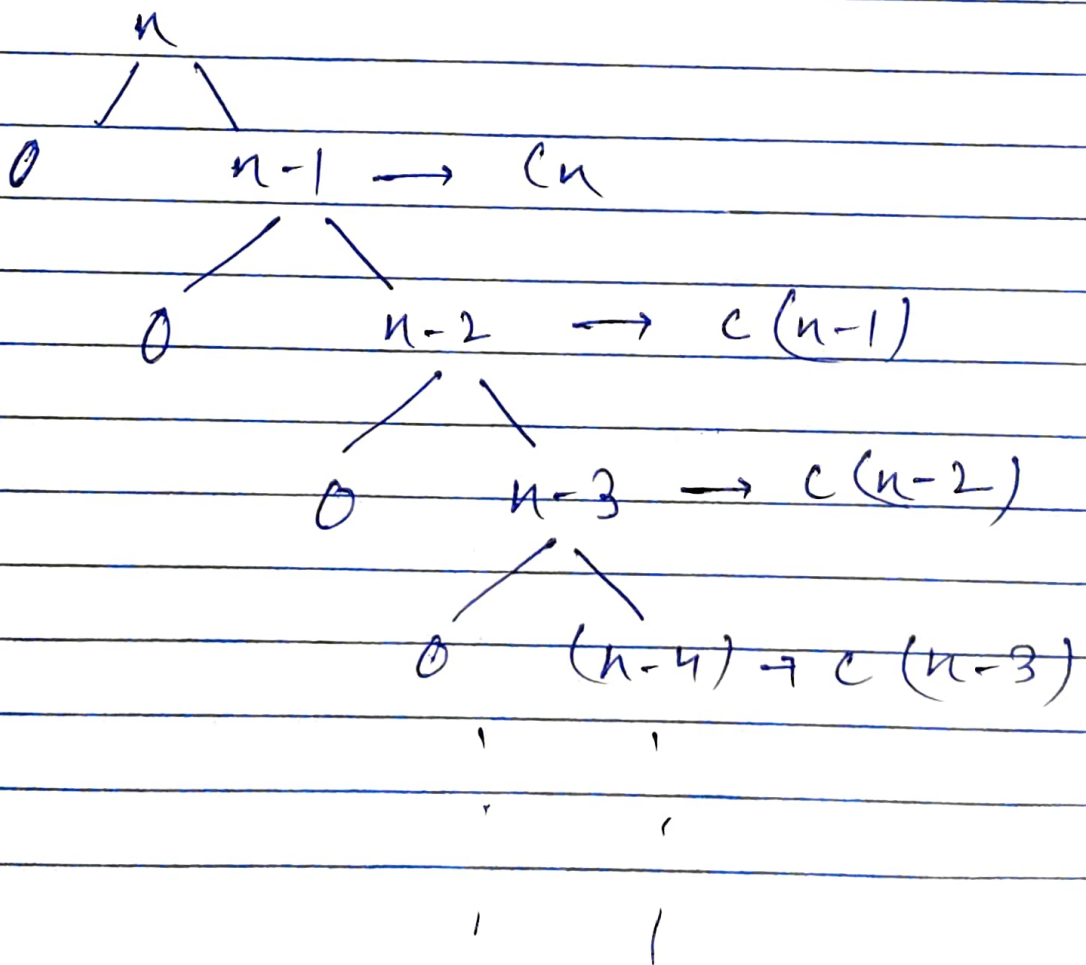 n
0 n-1 → cn
0 n-2 → c(n-1)
0 n-3 → c(n-2)
0 (n-4) → c(n-3)